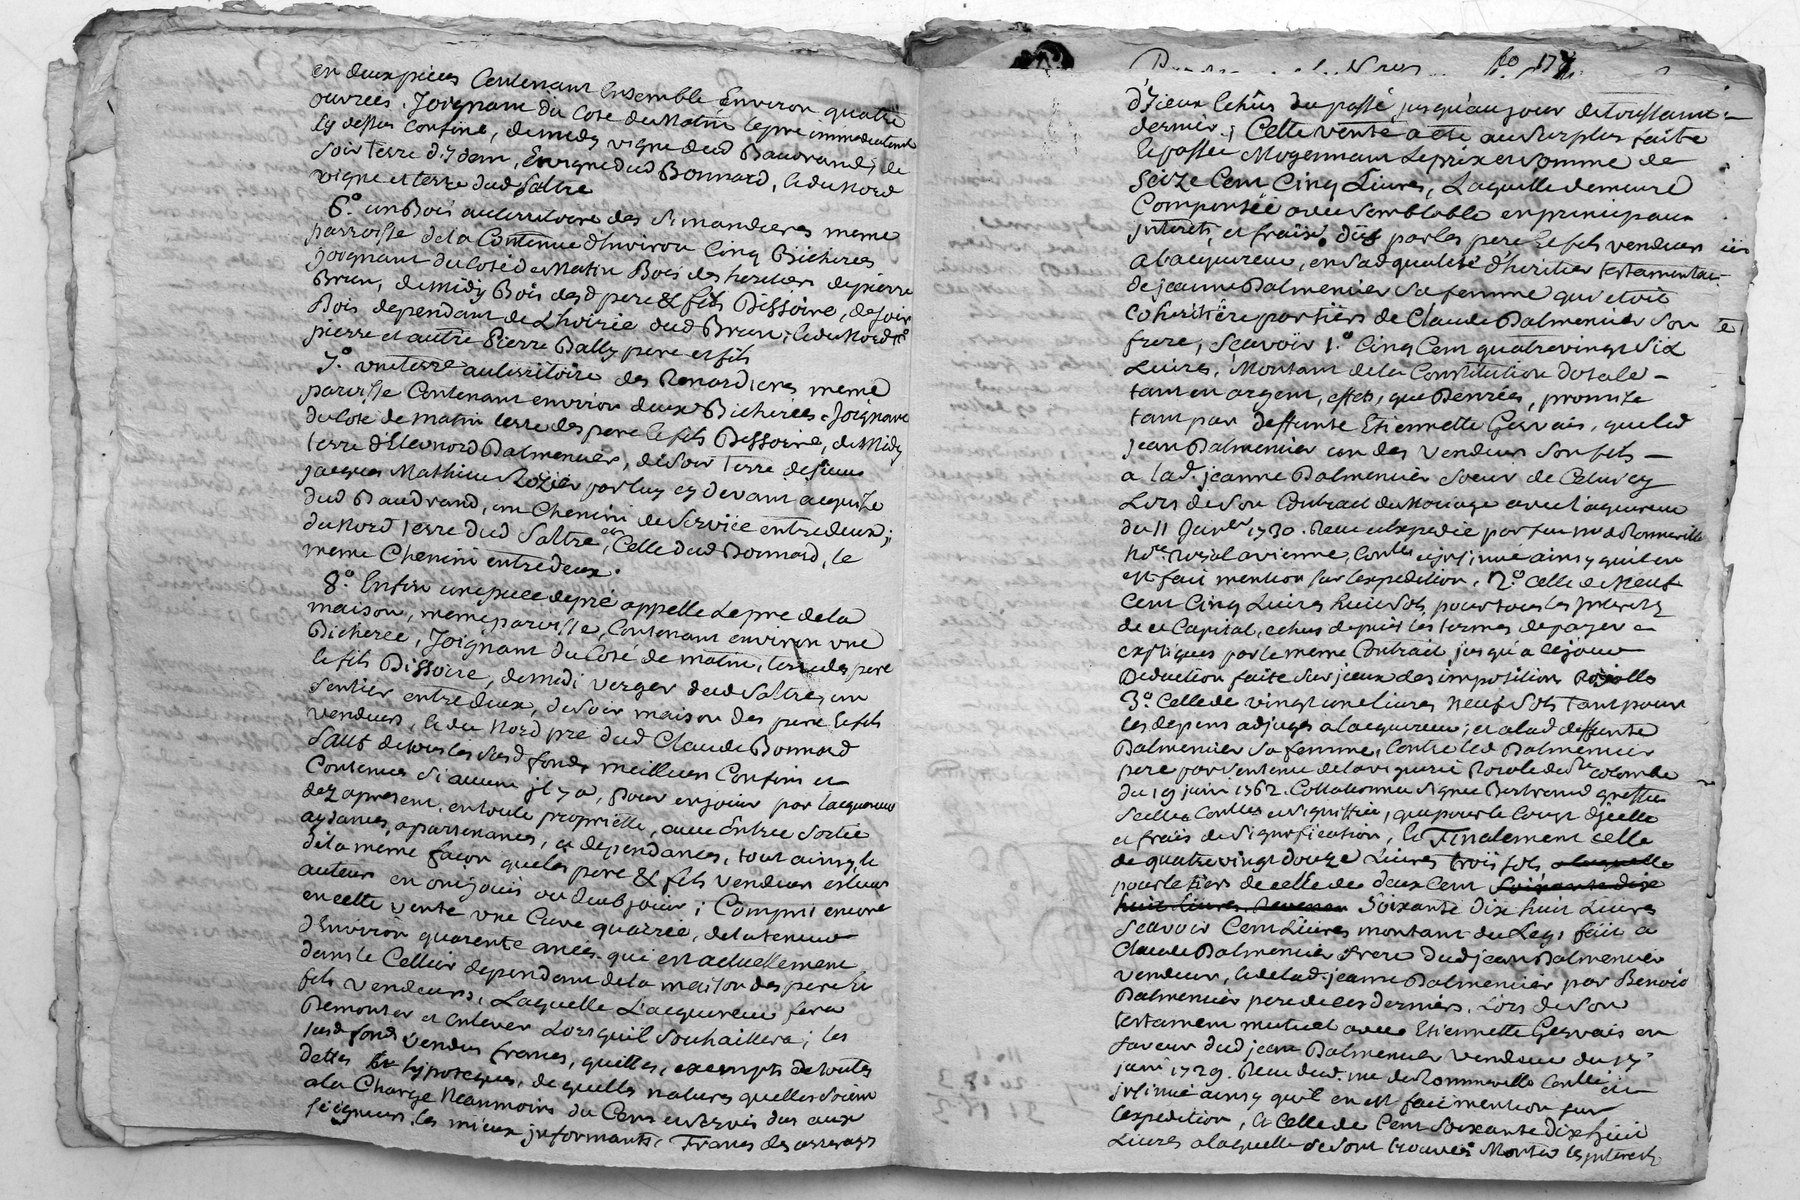 en deux pieces Contenant Ensemble Environ quatre
ouvrées. Joignant du Coté du Matin le pré immediatement
Cy dessus Confiné, de midy vigne dud Baudrand, de
Soir Terre d'Idem, En vigne dud Bonnard, & du Nord
vigne et terre dud Saltre
6.º un Bois au territoire des Simandieres meme
parroisse de la Contenue d'Environ Cinq Bicherées
Joignant du Coté de Matin Bois des heritiers de pierre
Brun, de midy Bois desd pere & fils Dissoire, de soir
Bois dependant de L'hoirie dud Brun, & du Nord
pierre et autre Pierre Bally pere et fils
7.º une terre au territoire des Renardieres meme
paroisse Contenant environ deux Bicherées. Joignant
du Coté de matin terre des pere & fils Dissoire, de Midy
terre d'Eleonord Dalmencier, de Soir Terre de sieur
Jacques Mathieu Rozier par luy cy devant acquise
dud Baudrand, un Chemin de Service entredeux;
du Nord Terre dud Saltre, et Celle dud Bonnard, le
meme Chemin entredeux.
8.º Enfin une piece de pré appellé Le pré de la
maison, meme paroisse, Contenant environ une
Bicherée, Joignant du Coté de matin, terre des pere
& fils Dissoire, de midi verger dud Saltre, un
Sentier entredeux, de soir maison des pere & fils
vendeurs, & du Nord pré dud Claude Bonnard
Sauf de tous les Susd fonds meilleurs Confins et
Contenues Si aucun il y a, pour en jouir par l'acquereur
dez apresent, en toute proprieté, avec Entrée Sortie
aysances, apartenances, et dependances, tout ainsy &
de la meme façon que les pere & fils vendeurs et leurs
auteurs en ont joui ou dub jouir; Compris encore
en cette vente une Cuve quarrée, de la teneur
d'Environ quarente anées qui est actuellement
dans le Cellier dependant de la maison des pere &
fils vendeurs, Laquelle L'acquereur fera
Demonter et Enlever Lorsquil Souhaittera; les
susd fonds vendus francs, quittes, exempts de toutes
dettes & hypoteques, de quelles natures quelles soient
a la Charge Neanmoins du Cens et Servis dus aux
Seigneurs les mieux informants, Francs des arrerages
fo 17
d'Iceux Echûs du passé jusqu'au jour de toussaint
dernier; Cette vente a été au surplus faite
& passée Moyennant Le prix et somme de
Seize Cent Cinq Livres, Laquelle demeure
Compensée avec Semblable en principaux
Interets, et fraix dûs par les pere & fils vendeurs
a l'acquereur, en sad qualité d'heritier testamentaire
de jeanne Dalmencier Sa femme qui etoit
Coheritière portiers de Claude Dalmencier Son
frere, Scavoir 1.º Cinq Cent quatrevingt Six
Livres, Montant de la Constitution dotale
tant en argent, effets, que Denrées, promise
tant par deffunte Etiennette Gervais, que led
jean Dalmencier un des vendeurs Son fils
a lad. jeanne Dalmencier Soeur de Celuicy
Lors de Son Contract de Mariage avec l'acquereur
du 11 Janvier 1730. Receu et expedié par feu me de Rommeville
Nore. Royal a vienne, Conllé et insinué ainsy quil en
est fait mention sur l'expedition, 2.º Celle de Neuf
Cent Cinq Livres huit Sols, pour tous les Interets
de ce Capital, echus depuis les termes de payer
expliqués par le meme Contract jusqu'a ce jour
Deduction faite sur iceux des impositions Royalles
3.º Celle de vingt une Livres Neuf Sols tant pour
les depens adjugés a l'acquereur; et a lad deffunte
Dalmencier Sa femme, Contre led Dalmencier
pere par Sentence de la viguerie Royale de Ste Colombe
du 19 juin 1762. Collationné Signé Bertrand greffier
Scellée Conllée et Signiffiée, que pour le Coust d'icelle
et frais de Signification, & Finalement Celle
de quatrevingt douze Livres trois sols
pour le tiers de celle de deux Cent Soixante dix
huit Livres Soixante dix huit Livres
Scavoir Cent Livres montant du Legs fait a
Claude Dalmencier frere dud jean Dalmencier
vendeur, & de lad. jeanne Dalmencier par Benoit
Dalmencier pere de ces derniers, Lors de Son
testament mutuel avec Etiennette Gervais en
faveur dud jean Dalmencier vendeur du
janv 1729. Receu dud. me de Rommeville Conllé et
insinué ainsy qu'il en est fait mention sur
l'expedition, & Celle de Cent Soixante dix huit
Livres a laquelle se sont trouvés Monter les interets